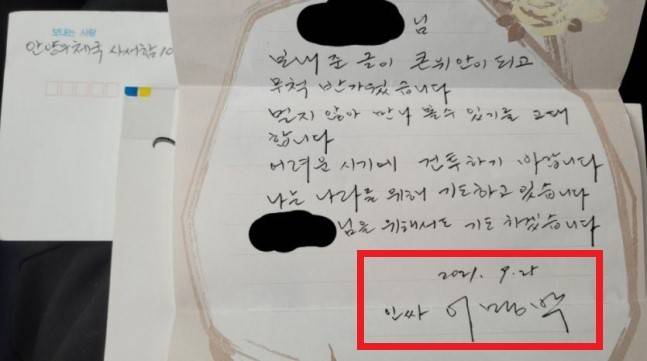 보내는 사람
안양우체국 사서함 10
님
보내 준 글이 큰 위안이 되고
무척 반가웠습니다
멀지 않아 만나 볼수 있기를 고대
합니다
어려운 시기에 건투하기 바랍니다
나는 나라를 위해 기도하고 있습니다
님을 위해서도 기도 하겠습니다
2021. 9. 25
인싸 이명박